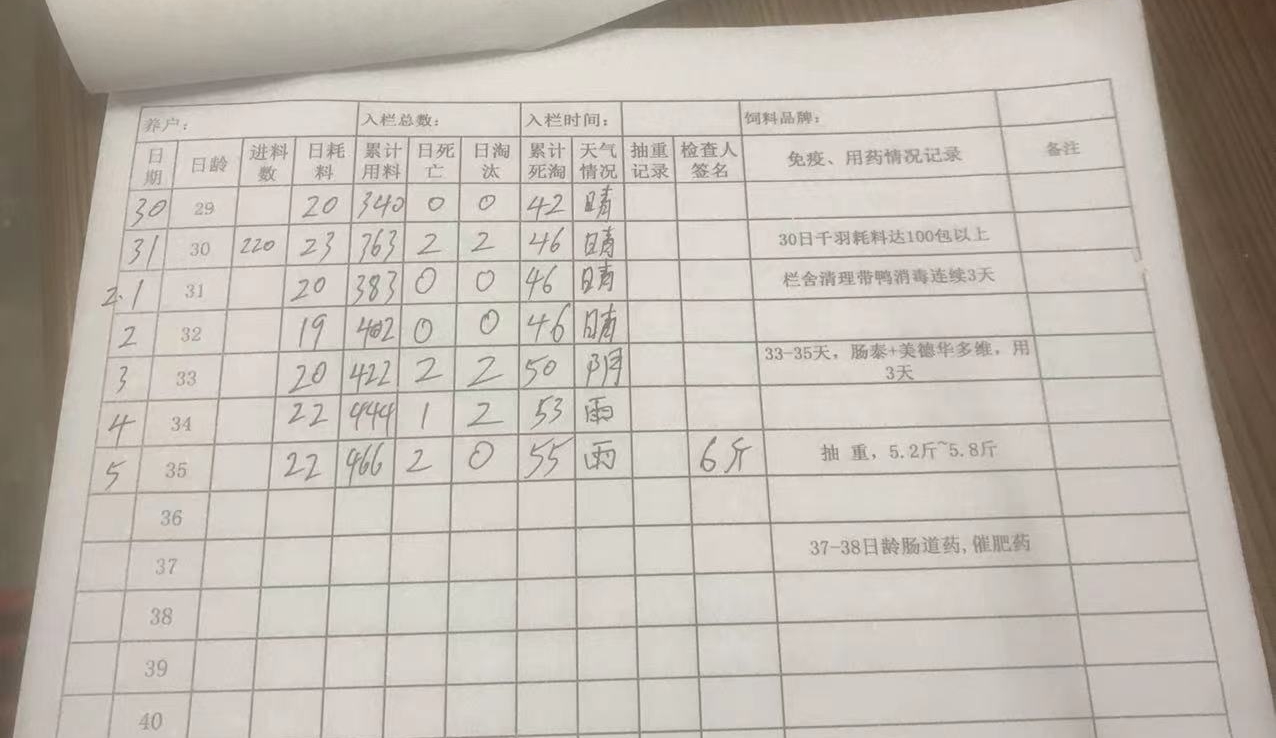 养户： 入栏总数： 入栏时间： 饲料品牌：
日期 日龄 进料数 日耗料 累计用料 日死亡 日淘汰 累计死淘 天气情况 抽重记录 检查人签名 免疫、用药情况记录 备注
30 29 20 340 0 0 42 晴
31 30 220 23 363 2 2 46 晴 30日千羽耗料达100包以上
2.1 31 20 383 0 0 46 晴 栏舍清理带鸭消毒连续3天
2 32 19 402 0 0 46 晴
3 33 20 422 2 2 50 阴 33-35天，肠泰+美德华多维，用3天
4 34 22 444 1 2 53 雨
5 35 22 466 2 0 55 雨 6斤 抽 重，5.2斤~5.8斤
36
37 37-38日龄肠道药,催肥药
38
39
40